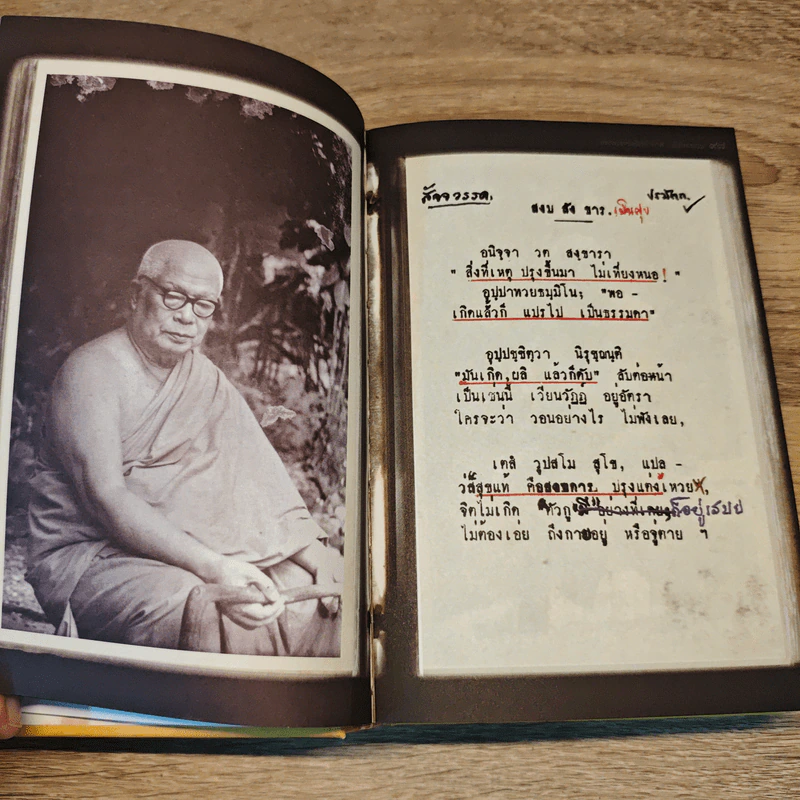 สัจจวรรค.
ปรมัตถ.
สงบ สัง ขาร. เป็นสุข
อนิจฺจา วต สงฺขารา
" สิ่งที่เหตุ ปรุงขึ้นมา ไม่เที่ยงหนอ ! "
อุปฺปาทวยธมฺมิโน; "พอ -
เกิดแล้วก็ แปรไป เป็นธรรมดา"
อุปฺปชฺชิตฺวา นิรุชฺฌนฺติ
"มันเกิด,ผลิ แล้วก็ดับ" ลับต่อหน้า
เป็นเช่นนี้ เวียนวัฏฏ์ อยู่อัตรา
ใครจะว่า วอนอย่างไร ไม่ฟังเลย,
เตสํ วูปสโม สุโข, แปล -
ว่าสุขแท้ คือสงบการ ปรุงแต่งเหวย,
จิตไม่เกิด "ตัวกู" ก็อยู่เสบย
ไม่ต้องเอ่ย ถึงกายอยู่ หรือจู่ตาย ฯ